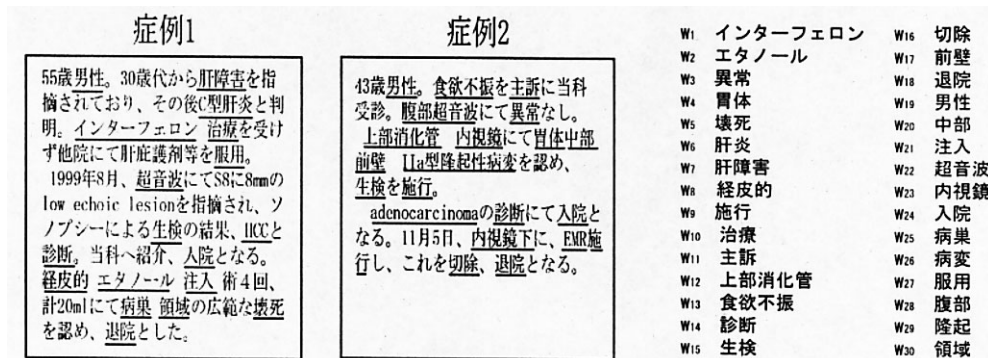 症例1
55歳男性。30歳代から肝障害を指
摘されており、その後C型肝炎と判
明。インターフェロン 治療を受け
ず他院にて肝庇護剤等を服用。
1999年8月、超音波にてS8に8mmの
low echoic lesionを指摘され、ソ
ノプシーによる生検の結果、HCCと
診断。当科へ紹介、入院となる。
経皮的 エタノール 注入 術4回、
計20mlにて病巣 領域の広範な壊死
を認め、退院とした。
症例2
43歳男性。食欲不振を主訴に当科
受診。腹部超音波にて異常なし。
上部消化管 内視鏡にて胃体中部
前壁 IIa型隆起性病変を認め、
生検を施行。
adenocarcinomaの診断にて入院と
なる。11月5日、内視鏡下に、EMR施
行し、これを切除、退院となる。
W1 インターフェロン
W2 エタノール
W3 異常
W4 胃体
W5 壊死
W6 肝炎
W7 肝障害
W8 経皮的
W9 施行
W10 治療
W11 主訴
W12 上部消化管
W13 食欲不振
W14 診断
W15 生検
W16 切除
W17 前壁
W18 退院
W19 男性
W20 中部
W21 注入
W22 超音波
W23 内視鏡
W24 入院
W25 病巣
W26 病変
W27 服用
W28 腹部
W29 隆起
W30 領域